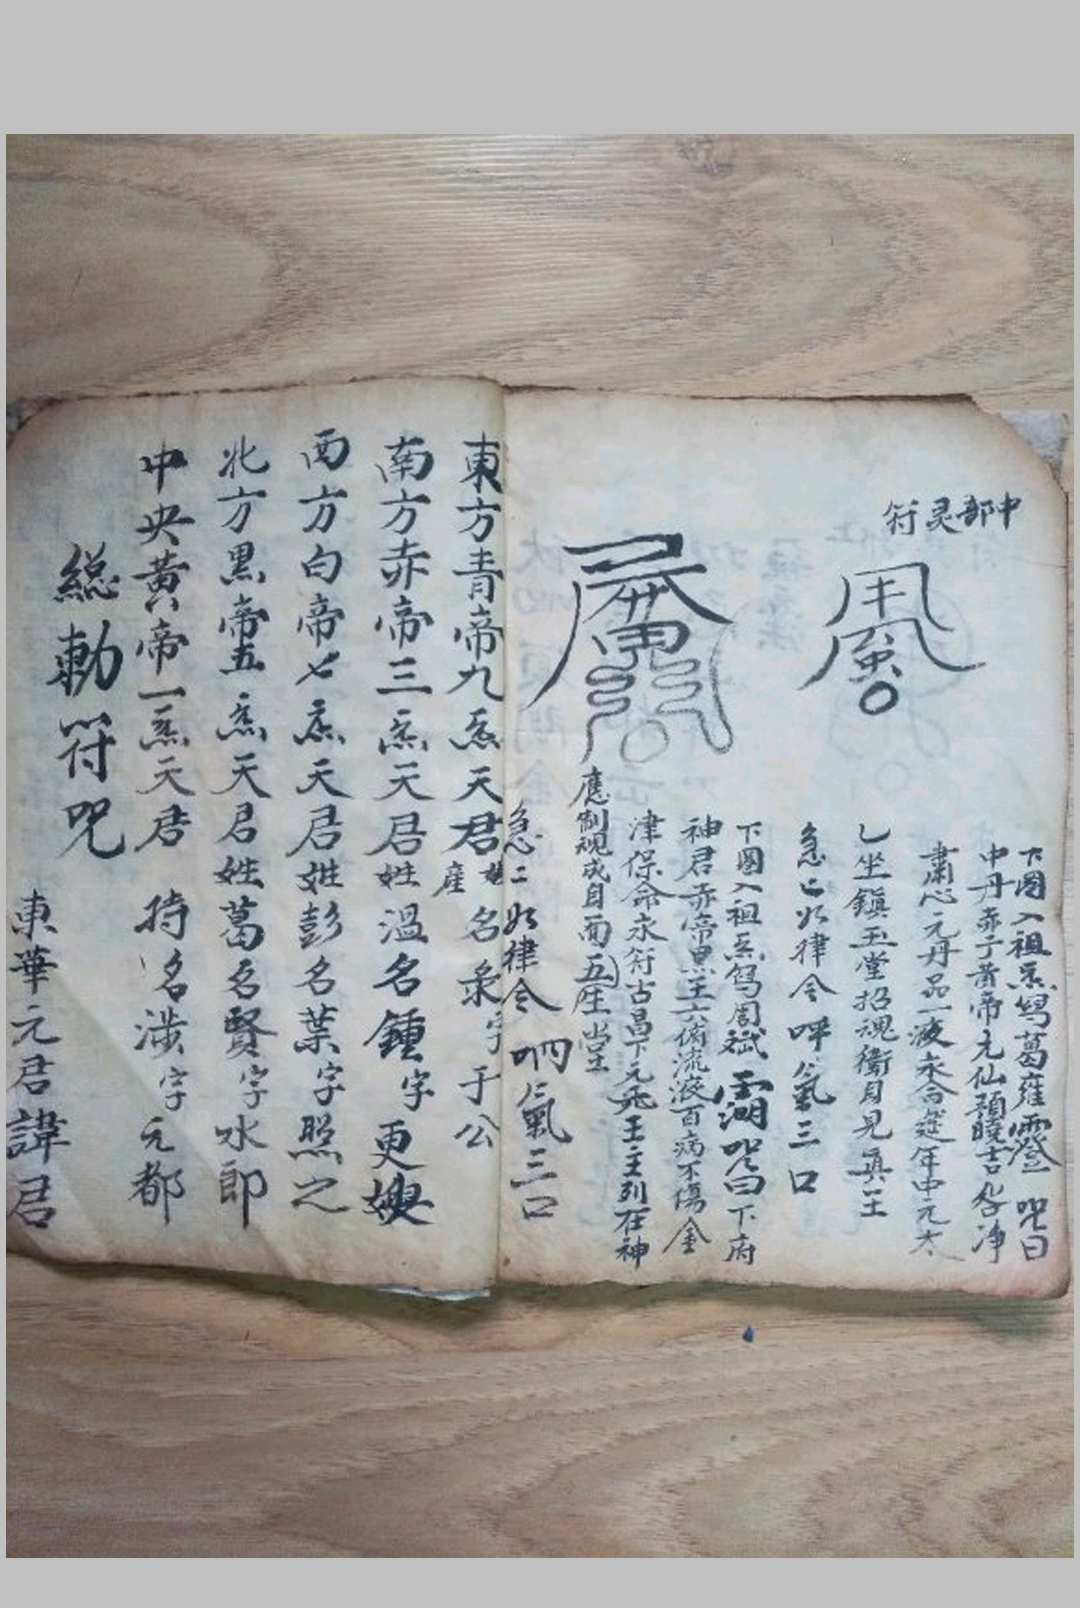 中部灵符
下圓入祖炁寫葛雍霐 咒曰
中丹赤子黃帝元仙頭曉吉冬净
肅心元丹品一液永合延年中元太
乚坐鎮玉堂招魂衛自見真王
急匕如律令呼氣三口
下圓入祖炁寫周斌 咒曰下府
神君赤帝黑王六府流液百病不傷金
津保命永符古昌下元飛王主列在神
應制魂成自而五生堂
急二如律令呬氣三口
東方青帝九炁天君姓產名眾字于公
南方赤帝三炁天君姓溫名鍾字更嫂
西方白帝七炁天君姓彭名葉字照之
北方黑帝五炁天君姓葛名賢字水郎
中央黃帝一炁天君 持名涉字元都
總勅符咒
東華元君諱君